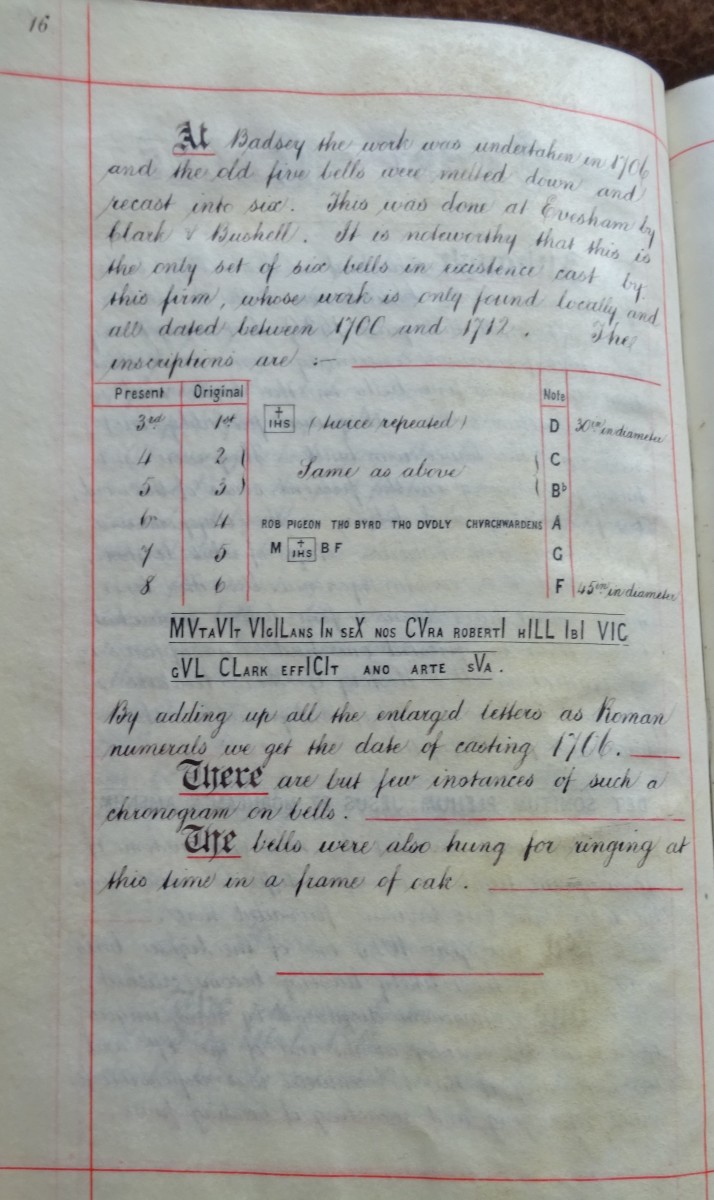 16
At Badsey the work was undertaken in 1706
and the old five bells were melted down and
recast into six. This was done at Evesham by
Clark & Bushell. It is noteworthy that this is
the only set of six bells in existence cast by
this firm, whose work is only found locally and
all dated between 1700 and 1712. The
inscriptions are :—
Present Original Note
3rd 1st ☩ IHS (twice repeated) D 30 in diameter
4 2 Same as above C
5 3 Bb
6 4 ROB PIGEON THO BYRD THO DVDLY CHVRCHWARDENS A
7 5 M ☩ IHS B F G
8 6 F 45 in diameter
MVTAVIT VIGILANS IN SEX NOS CVRA ROBERTI HILL IBI VIC
GVL CLARK EFFICIT ANO ARTE SVA.
By adding up all the enlarg'd letters as Roman
numerals we get the date of casting 1706.
There are but few instances of such a
chronogram on bells.
The bells were also hung for ringing at
this time in a frame of oak.